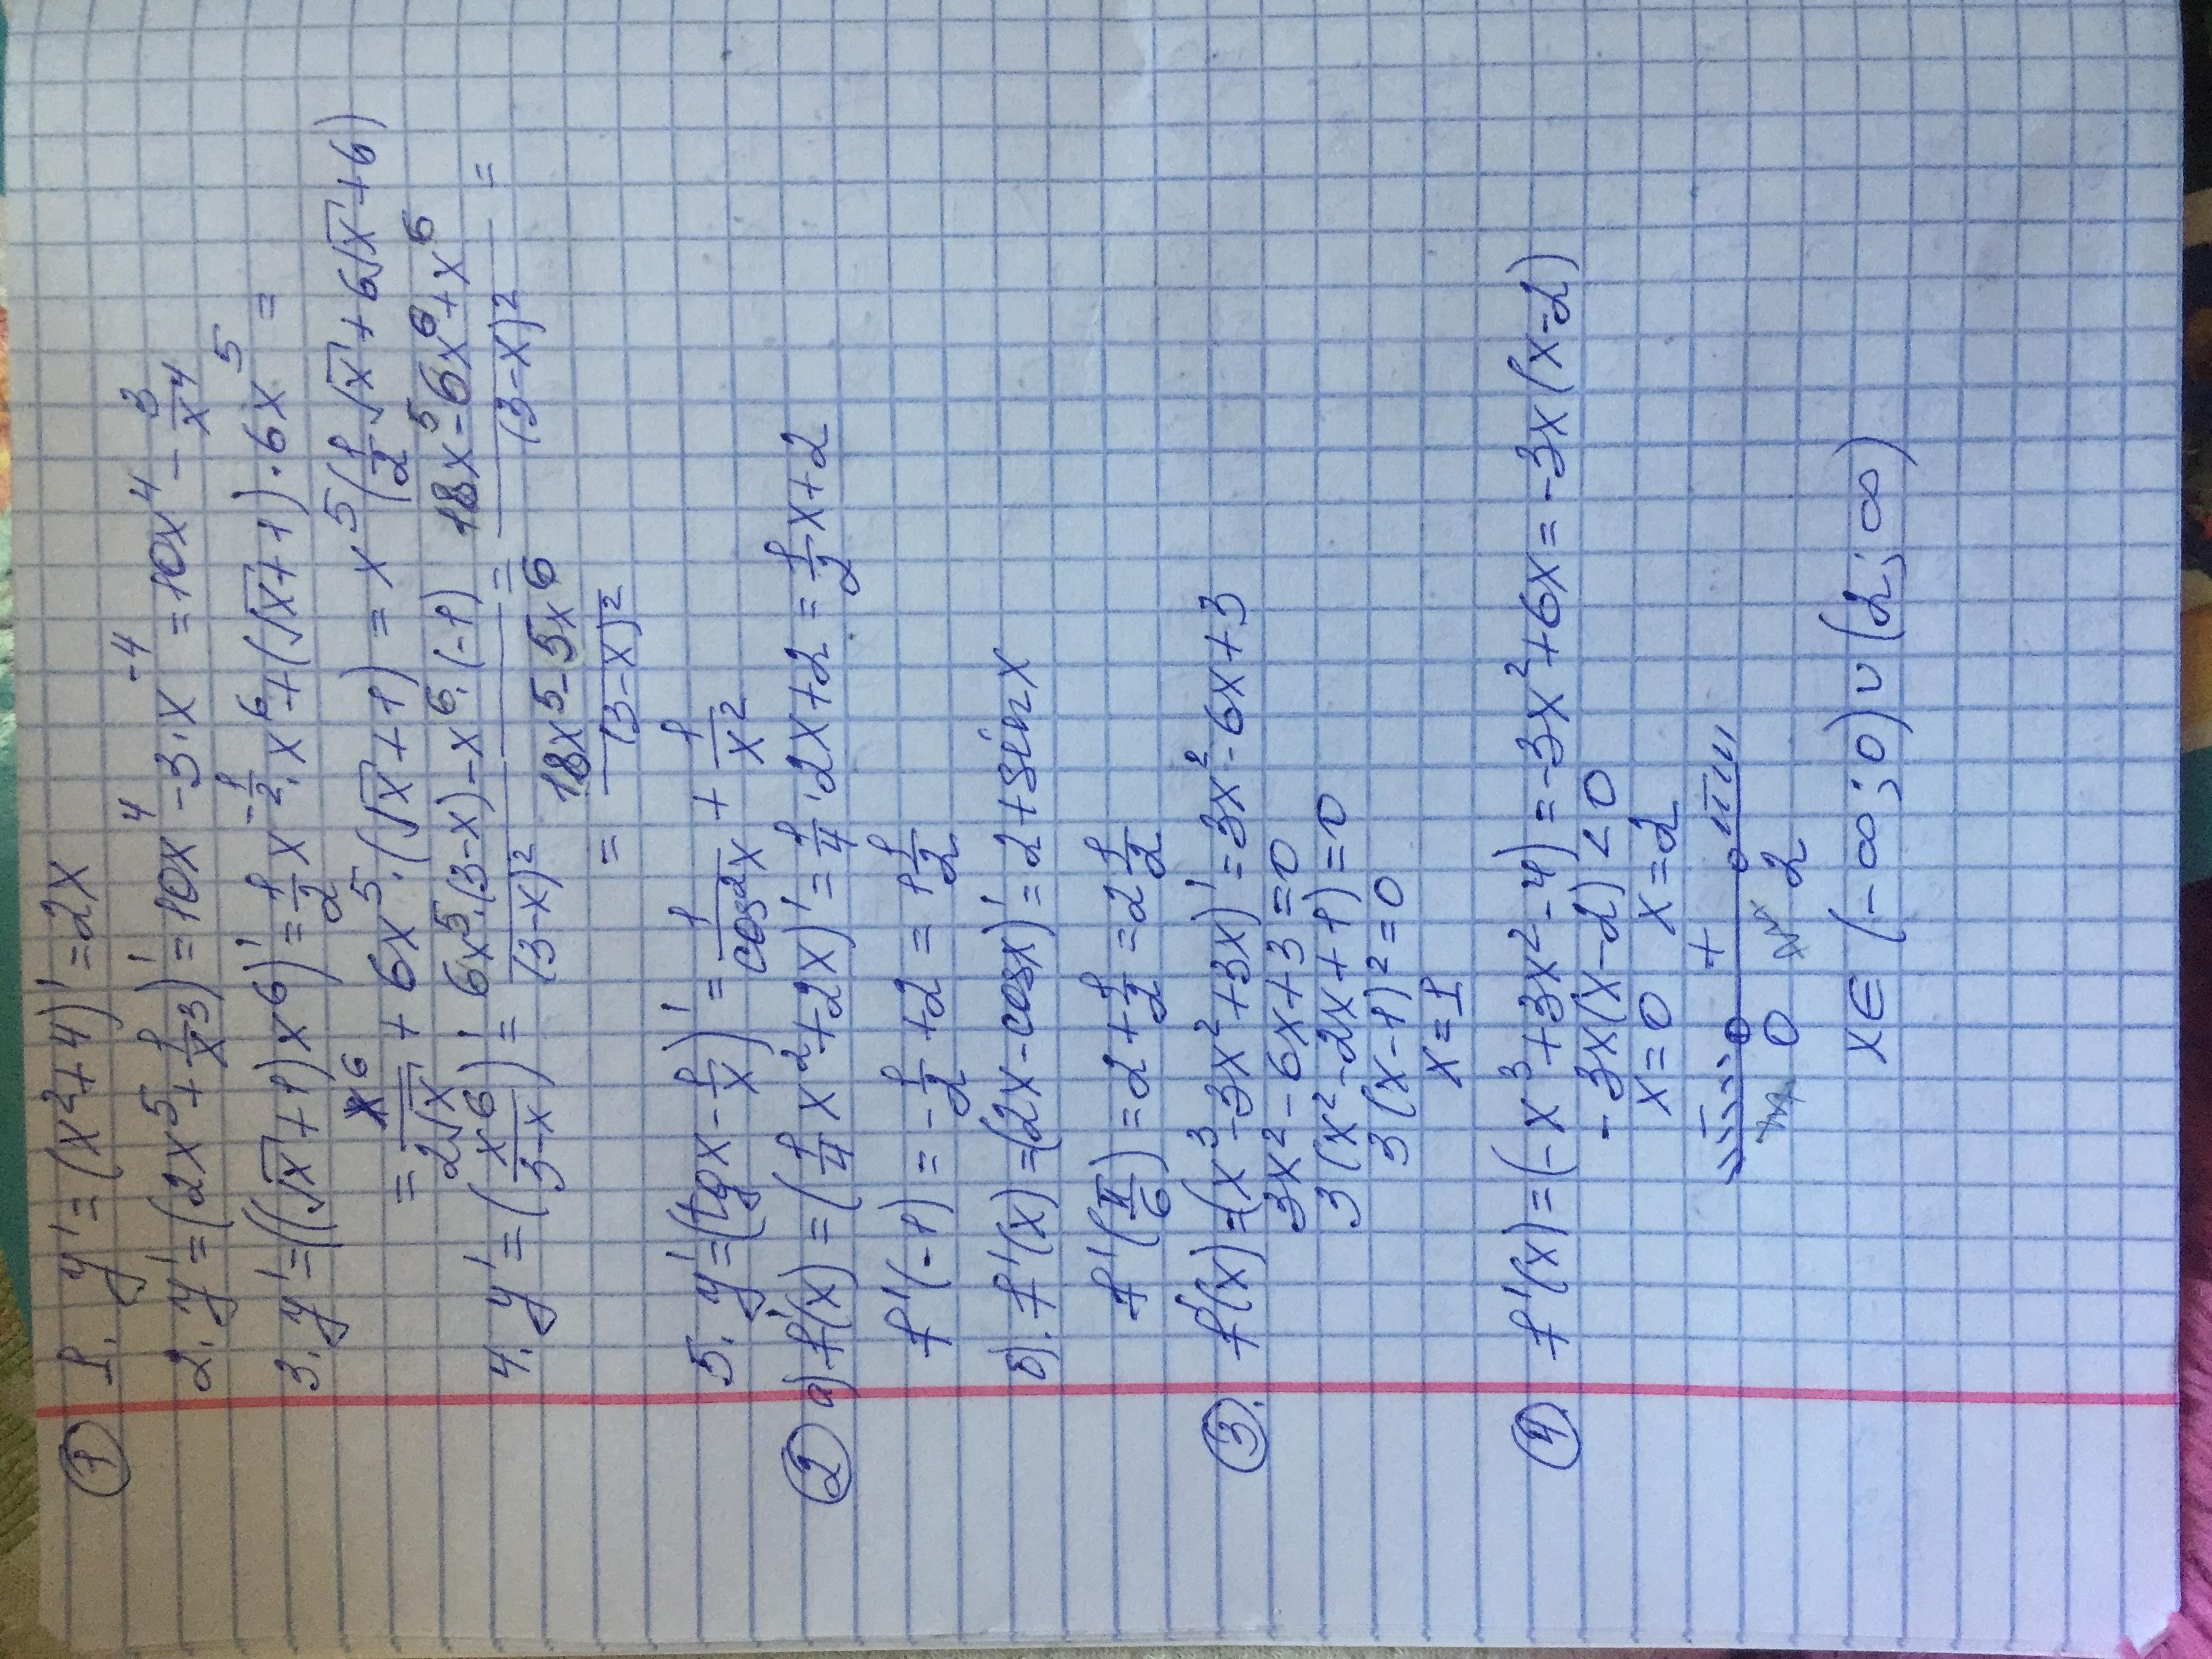 ① 1. y' = (x²+4)' = 2x
2. y' = (2x⁵ + 1/x³)' = 10x⁴ - 3·x⁻⁴ = 10x⁴ - 3/x⁴
3. y' = ((√x + 1)x⁶)' = 1/2 x^(-1/2) · x⁶ + (√x + 1)·6x⁵ =
= x⁶/(2√x) + 6x⁵·(√x + 1) = x⁵(1/2 √x + 6√x + 6)
4. y' = (x⁶/(3-x))' = (6x⁵·(3-x) - x⁶·(-1))/(3-x)² = (18x⁵ - 6x⁶ + x⁶)/(3-x)² =
= (18x⁵ - 5x⁶)/(3-x)²
5. y' = (tgx - 1/x)' = 1/cos²x + 1/x²
② а) f'(x) = (1/4 x² + 2x)' = 1/4 · 2x + 2 = 1/2 x + 2
f'(-1) = -1/2 + 2 = 1 1/2
б). f'(x) = (2x - cosx)' = 2 + sinx
f'(π/6) = 2 + 1/2 = 2 1/2
③. f'(x) = (x³ - 3x² + 3x)' = 3x² - 6x + 3
3x² - 6x + 3 = 0
3(x² - 2x + 1) = 0
3(x - 1)² = 0
x = 1
④ f'(x) = (-x³ + 3x² - 4)' = -3x² + 6x = -3x(x-2)
-3x(x-2) < 0
x = 0 x = 2
- + -
0 2
x ∈ (-∞; 0) ∪ (2; ∞)